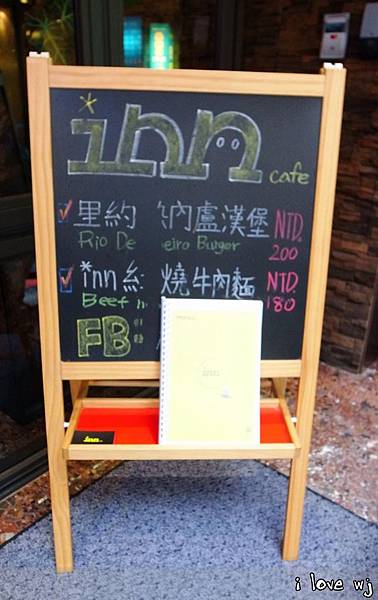 inn cafe
里約 內盧漢堡 NTD.
Rio De eiro Burger 200
*inn 燒牛肉麵 NTD.
Beef 180
FB
inn
i love wj